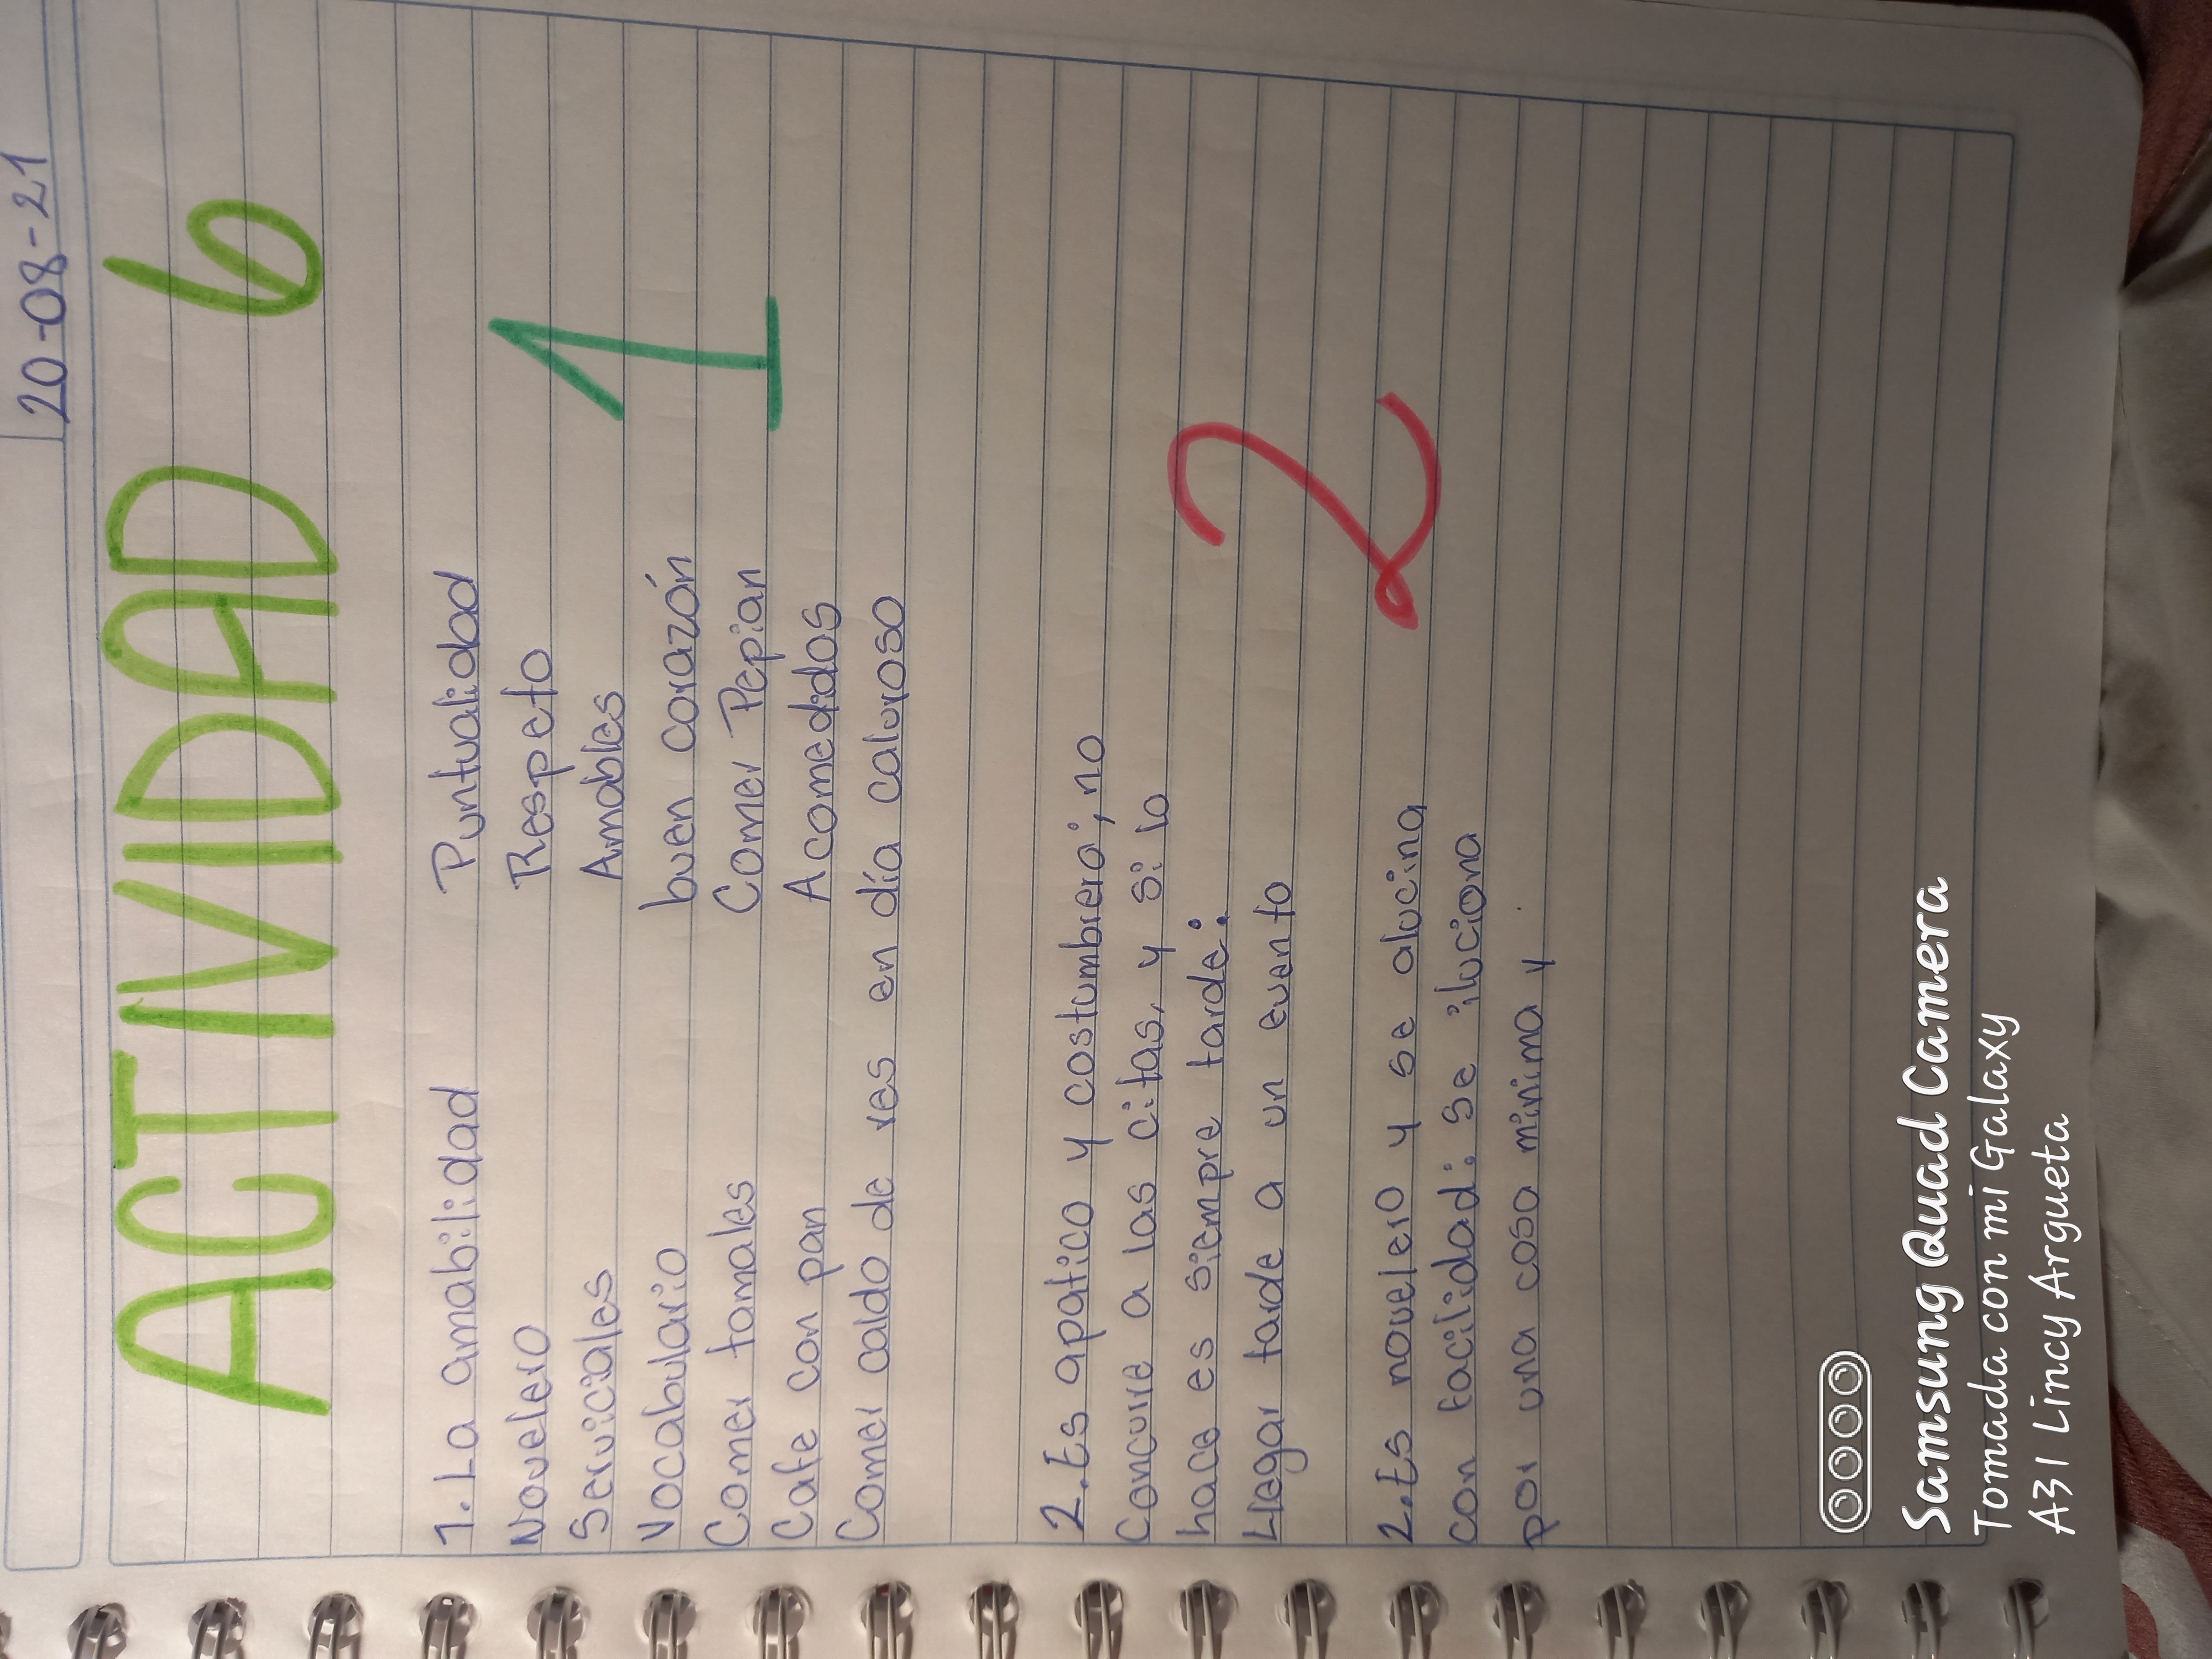 20-08-21
ACTIVIDAD 6
1. La amabilidad Puntualidad
Novelero Respeto
Serviciales Amables
Vocabulario buen corazón
Comer tamales Comer Pepian
Cafe con pan Acomedidos
Comer caldo de res en día caluroso
1
2. Es apatico y costumbrero; no
Concurre a las citas, y si lo
hace es siempre tarde:
Llegar tarde a un evento
2
2. Es novelero y se alucina
con facilidad: se ilusiona
por una cosa minima y.
Samsung Quad Camera
Tomada con mi Galaxy
A31 Lincy Argueta